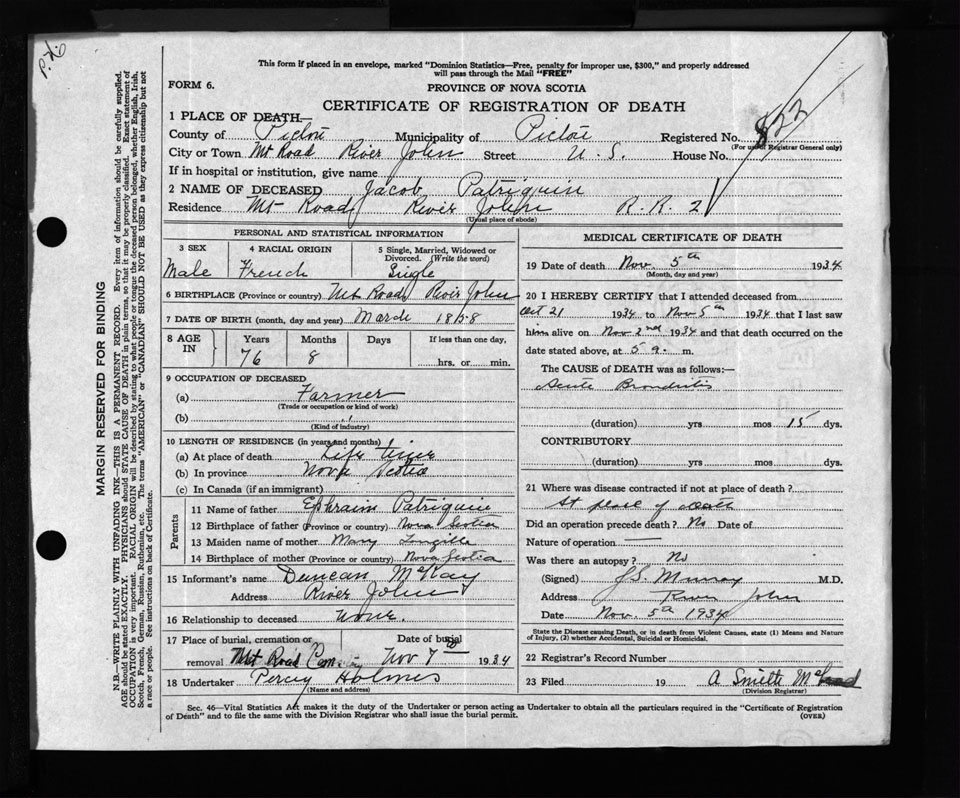 P.X.O
This form if placed in an envelope, marked "Dominion Statistics—Free, penalty for improper use, $300," and properly addressed
will pass through the Mail "FREE"
FORM 6.
PROVINCE OF NOVA SCOTIA
CERTIFICATE OF REGISTRATION OF DEATH
1 PLACE OF DEATH—
County of Pictou Municipality of Pictou Registered No. 822
(For use of Registrar General only)
City or Town Mt Road River John Street N. S. House No.
If in hospital or institution, give name
2 NAME OF DECEASED Jacob Patriquin
Residence Mt Road, River John R. R. 2
(Usual place of abode)
PERSONAL AND STATISTICAL INFORMATION
3 SEX 4 RACIAL ORIGIN 5 Single, Married, Widowed or Divorced. (Write the word)
Male French Single
6 BIRTHPLACE (Province or country) Mt Road, River John
7 DATE OF BIRTH (month, day and year) March 1858
8 AGE IN Years Months Days If less than one day,
76 8 hrs. or min.
9 OCCUPATION OF DECEASED
(a) Farmer
(Trade or occupation or kind of work)
(b)
(Kind of industry)
10 LENGTH OF RESIDENCE (in years and months)
(a) At place of death Life time
(b) In province Nova Scotia
(c) In Canada (if an immigrant)
Parents
11 Name of father Ephraim Patriquin
12 Birthplace of father (Province or country) Nova Scotia
13 Maiden name of mother Mary
14 Birthplace of mother (Province or country) Nova Scotia
15 Informant's name Duncan McKay
Address River John
16 Relationship to deceased None.
17 Place of burial, cremation or removal Mt Road Cemetery Date of burial Nov 7th 1934
18 Undertaker Percy Holmes
(Name and address)
MEDICAL CERTIFICATE OF DEATH
19 Date of death Nov. 5th 1934
(Month, day and year)
20 I HEREBY CERTIFY that I attended deceased from
Oct 21 1934 to Nov 5th 1934 that I last saw
him alive on Nov 2nd 1934 and that death occurred on
date stated above, at 5 a. m.
The CAUSE OF DEATH was as follows:—
Acute Bronchitis
(duration) yrs mos 15 dys.
CONTRIBUTORY
(duration) yrs mos dys.
21 Where was disease contracted if not at place of death?
At place of death
Did an operation precede death? No Date of
Nature of operation —
Was there an autopsy? No
(Signed) J.S. Murray M.D.
Address River John
Date Nov. 5th 1934
State the Disease causing Death, or in death from Violent Causes, state (1) Means and Nature
of Injury, (2) whether Accidental, Suicidal or Homicidal.
22 Registrar's Record Number
23 Filed 19
(Division Registrar)
Sec. 46—Vital Statistics Act makes it the duty of the Undertaker or person acting as Undertaker to obtain all the particulars required in the "Certificate of Registration
of Death" and to file the same with the Division Registrar who shall issue the burial permit. (OVER)
MARGIN RESERVED FOR BINDING
N.B.—WRITE PLAINLY WITH UNFADING INK—THIS IS A PERMANENT RECORD. Every item of information should be carefully supplied.
AGE should be stated EXACTLY. PHYSICIANS should STATE CAUSE OF DEATH in plain terms, so that it may be properly classified. Exact statement of
OCCUPATION is very important. RACIAL ORIGIN will be described by stating to what people or tongue the deceased person belonged, whether English, Irish,
Scotch, French, German, Russian, Ruthenian, etc. The terms "AMERICAN" or "CANADIAN" SHOULD NOT BE USED as they express citizenship but not
a race or people. See instructions on back of Certificate.